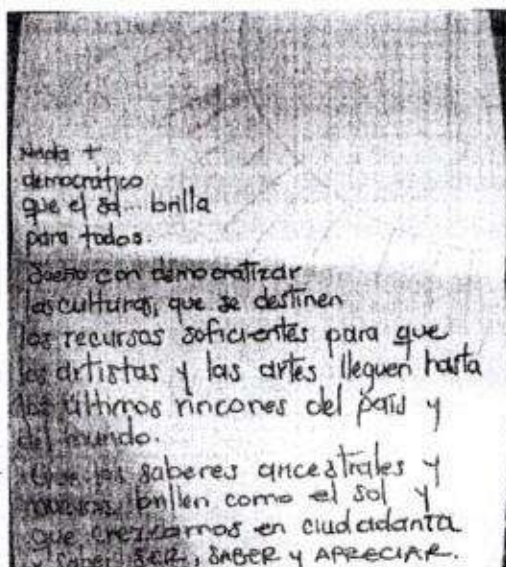 Nada +
democrático
que el sol... brilla
para todos.
Sueño con democratizar
las culturas, que se destinen
los recursos suficientes para que
los artistas y las artes lleguen hasta
los últimos rincones del país y
del mundo.
Que los saberes ancestrales y
nuevos brillen como el sol y
que crezcamos en ciudadanía
y saber SER, SABER y APRECIAR.